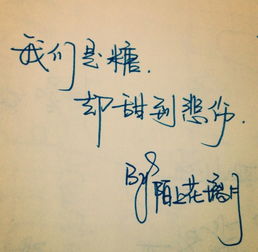 我们是糖.
却甜到悲伤.
By 陌上花璐月